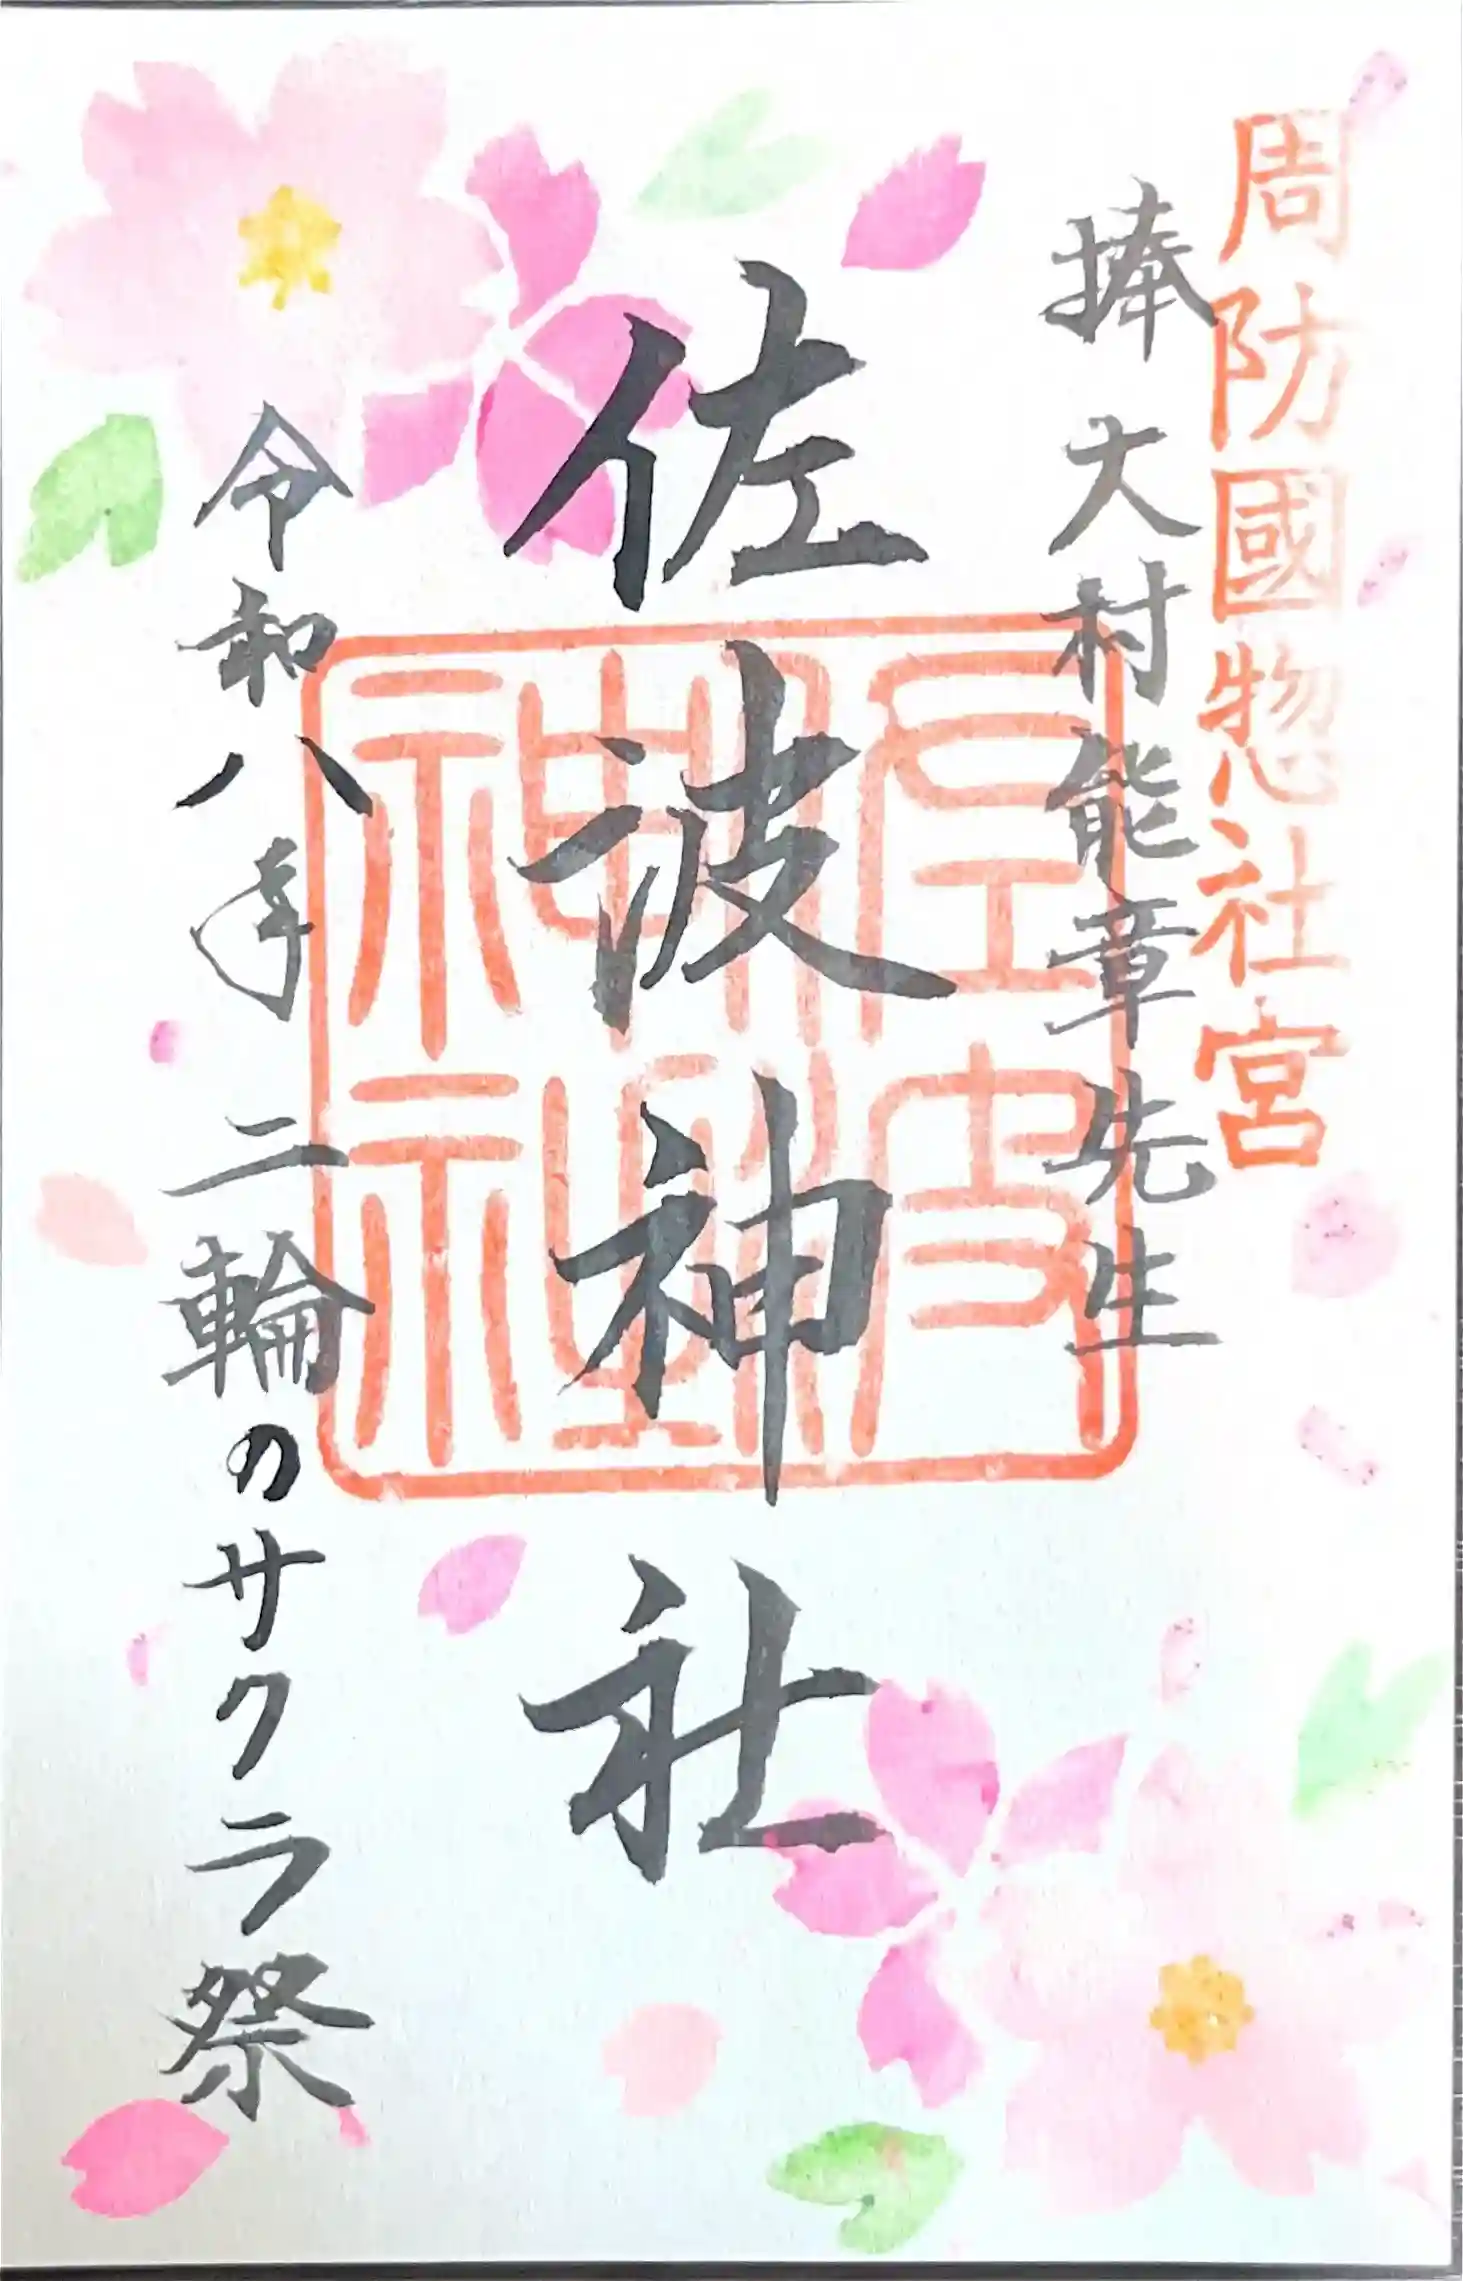 周防國惣社宮
捧 大村能章先生
佐波神社
佐波神社
令和八年 二輪のサクラ祭